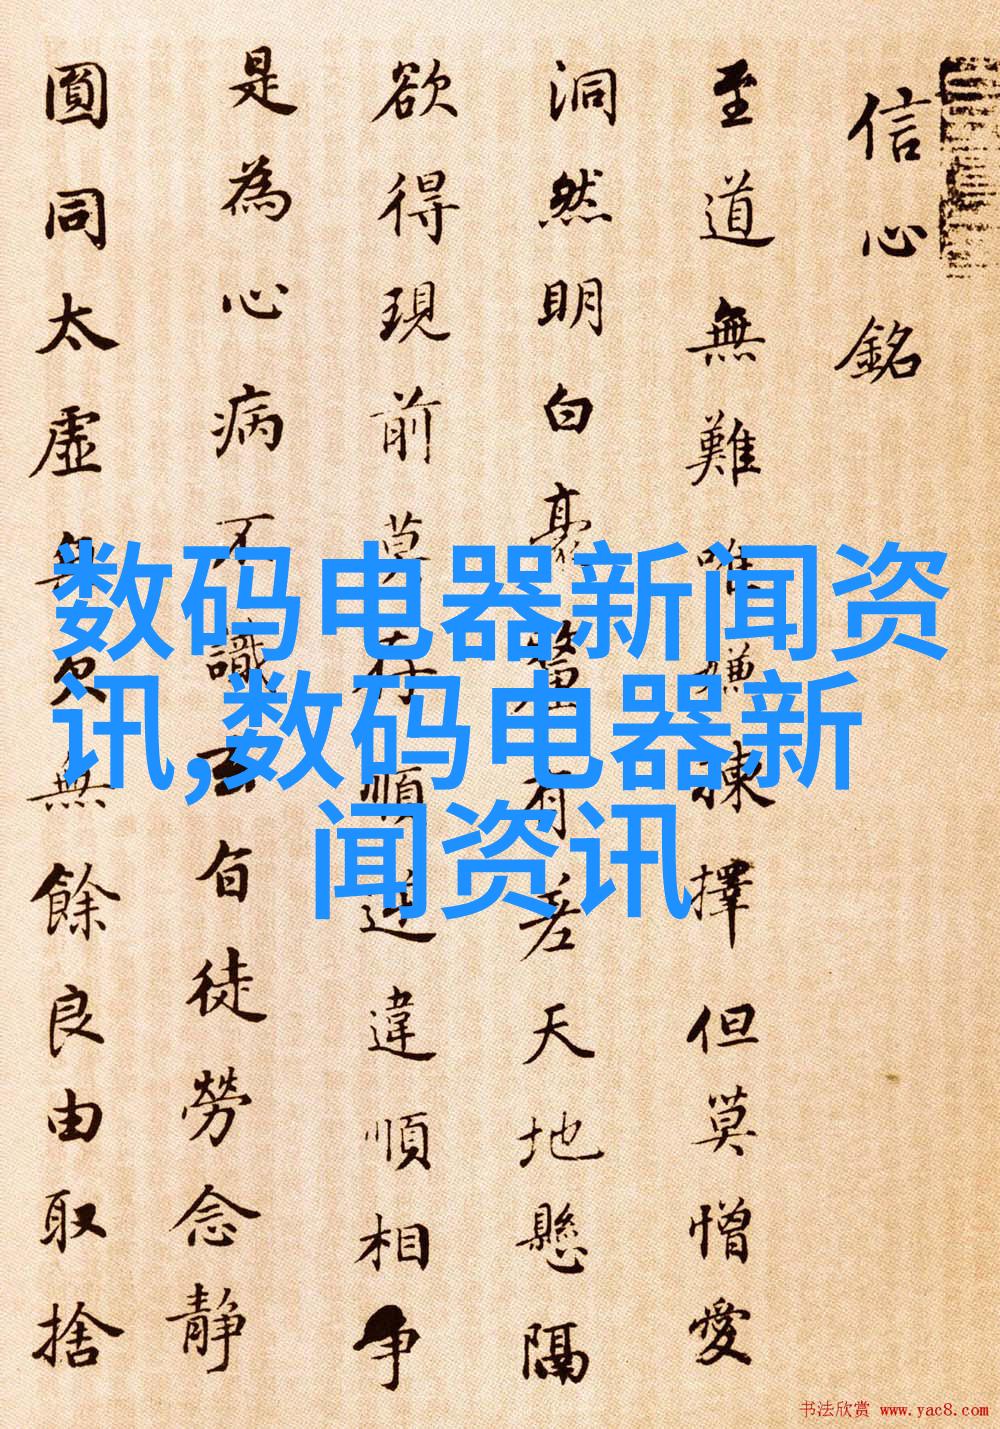 信心銘
至道無難唯嫌揀擇但莫憎愛
洞然明白豪釐有差天地懸隔
欲得現前莫存順逆違順相争
是為心病不識玄旨徒勞念静
圓同太虛無欠無餘良由取捨
数码电器新闻资
讯,数码电器新
闻资讯
书法欣赏 www.yac8.com